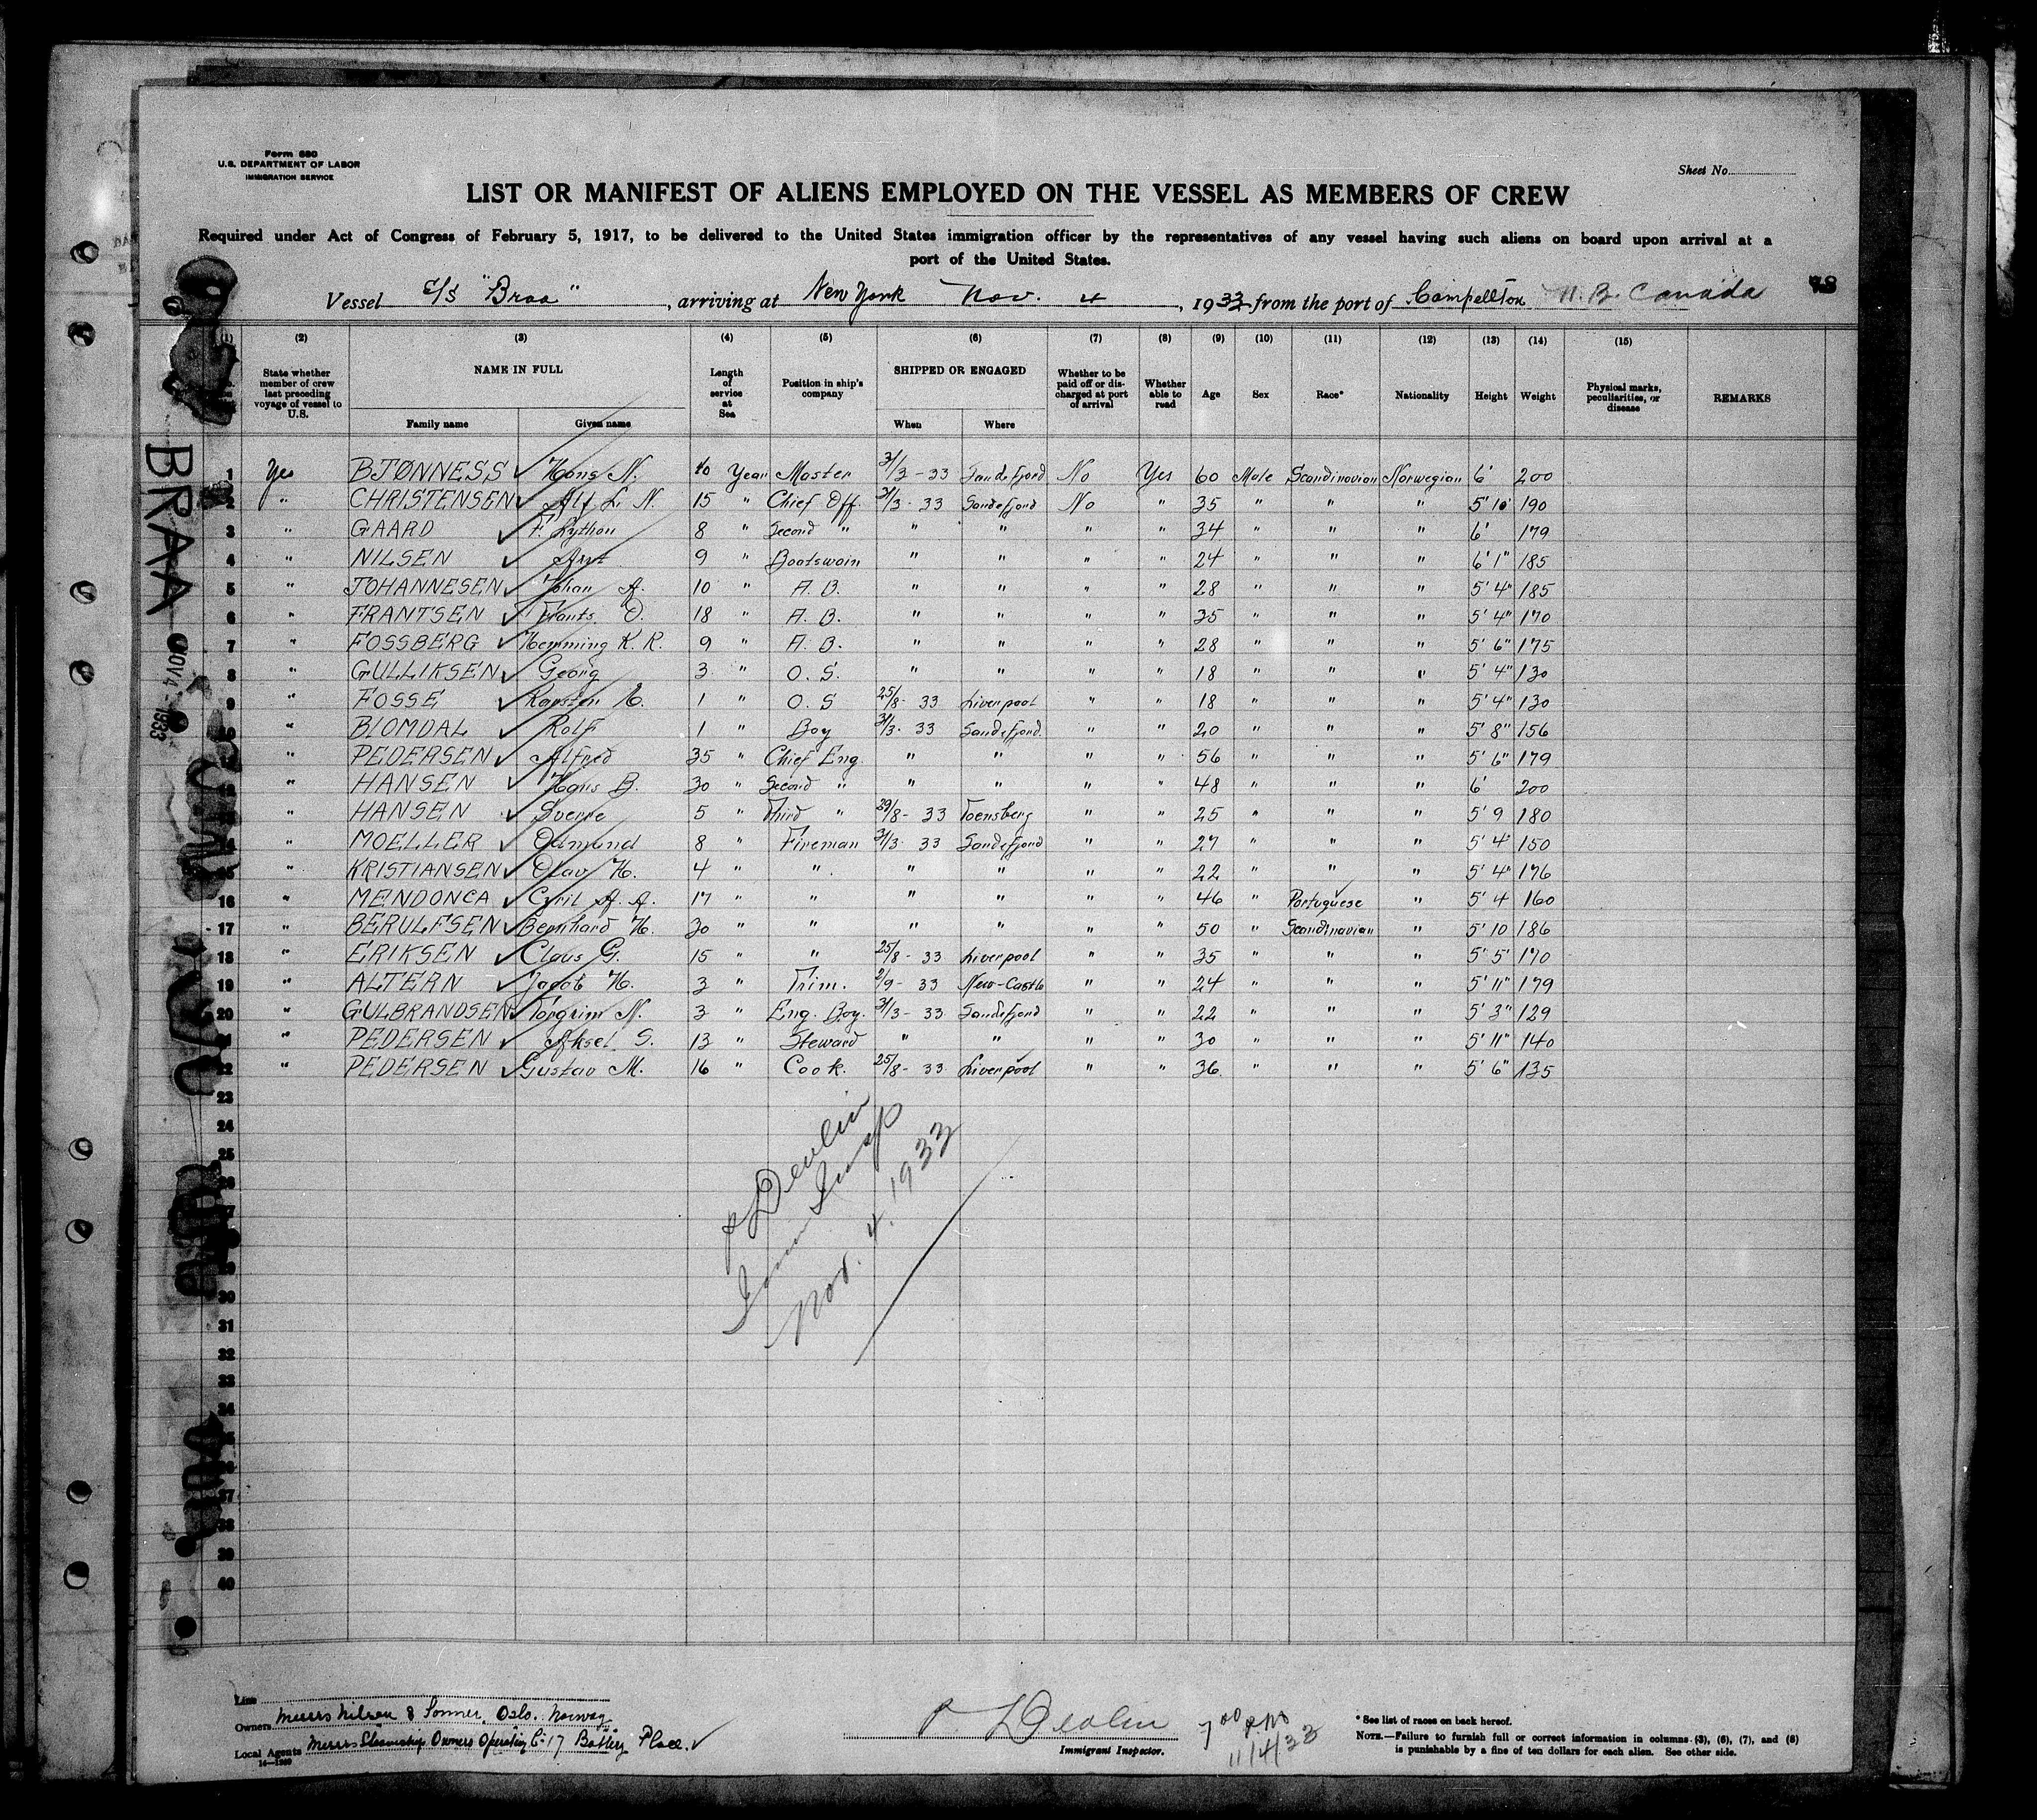 Form 680
U.S. DEPARTMENT OF LABOR
IMMIGRATION SERVICE
Sheet No.
LIST OR MANIFEST OF ALIENS EMPLOYED ON THE VESSEL AS MEMBERS OF CREW
Required under Act of Congress of February 5, 1917, to be delivered to the United States immigration officer by the representatives of any vessel having such aliens on board upon arrival at a
port of the United States.
Vessel S/S "Braa", arriving at New York Nov. 4, 1933 from the port of Campellton N.B. Canada
(1) (2) (3) (4) (5) (6) (7) (8) (9) (10) (11) (12) (13) (14) (15)
State whether member of crew last preceding voyage of vessel to U.S. NAME IN FULL Family name Given name Length of service at Sea Position in ship's company SHIPPED OR ENGAGED When Where Whether to be paid off or discharged at port of arrival Whether able to read Age Sex Race* Nationality Height Weight Physical marks, peculiarities, or disease REMARKS
1 Yes BJØNNESS Hans N. 40 Year Master 31/3-33 Sandefjord No Yes 60 Male Scandinavian Norwegian 6' 200
2 " CHRISTENSEN Alf L. N. 15 " Chief Off. 31/3-33 Sandefjord No " 35 " " " 5' 10" 190
3 " GAARD F. Lython 8 " Second " " " " " 34 " " " 6' 179
4 " NILSEN Arnt 9 " Bootswain " " " " 24 " " " 6' 1" 185
5 " JOHANNESEN Johan A. 10 " A. B. " " " " 28 " " " 5' 4" 185
6 " FRANTSEN Frants O. 18 " A. B. " " " " 35 " " " 5' 4" 170
7 " FOSSBERG Hemming K. R. 9 " A. B. " " " " 28 " " " 5' 6" 175
8 " GULLIKSEN Georg 3 " O. S. " " " " 18 " " " 5' 4" 130
9 " FOSSE Karsten H. 1 " O. S 25/8-33 Liverpool " " 18 " " " 5' 4" 130
10 " BLOMDAL Rolf 1 " Boy 31/3-33 Sandefjord " " 20 " " " 5' 8" 156
11 " PEDERSEN Alfred 35 " Chief Eng " " " " 56 " " " 5' 6" 179
12 " HANSEN Hans B. 30 " Second " " " " " 48 " " " 6' 200
13 " HANSEN Sverre 5 " Third " 29/8-33 Toensberg " " 25 " " " 5' 9 180
14 " MOELLER Odmund 8 " Fireman 31/3-33 Sandefjord " " 27 " " " 5' 4" 150
15 " KRISTIANSEN Olav H. 4 " " " " " " 22 " " " 5' 4" 176
16 " MENDONCA Cyril A. A. 17 " " " " " " 46 " Portuguese " 5' 4 160
17 " BERULFSEN Bernhard H. 30 " " " " " " 50 " Scandinavian " 5' 10 186
18 " ERIKSEN Claus G. 15 " " 25/8-33 Liverpool " " 35 " " " 5' 5' 170
19 " ALTERN Jacob H. 3 " Trim. 2/9-33 New-Castle " " 24 " " " 5' 11" 179
20 " GULBRANDSEN Torgrim N. 3 " Eng. Boy. 31/3-33 Sandefjord " " 22 " " " 5' 3" 129
21 " PEDERSEN Aksel S. 13 " Steward " " " " 30 " " " 5' 11" 140
22 " PEDERSEN Gustav M. 16 " Cook. 25/8-33 Liverpool " " 36 " " " 5' 6" 135
23
24
25
26
27
29
30
31
32
33
34
35
36
37
38
39
40
BRAA
NOV 4 - 1933
Devlin
Imm Insp
Nov. 4. 1933
Line
Owners Messrs Nilsen & Sonner, Oslo. Norway
Local Agents Messrs Steamship Owners Operating C- 17 Battery Place.
14-1240
Devlin
Immigrant Inspector.
7 00 P.M
11/4/33
* See list of races on back hereof.
NOTE.—Failure to furnish full or correct information in columns (3), (6), (7), and (8)
is punishable by a fine of ten dollars for each alien. See other side.